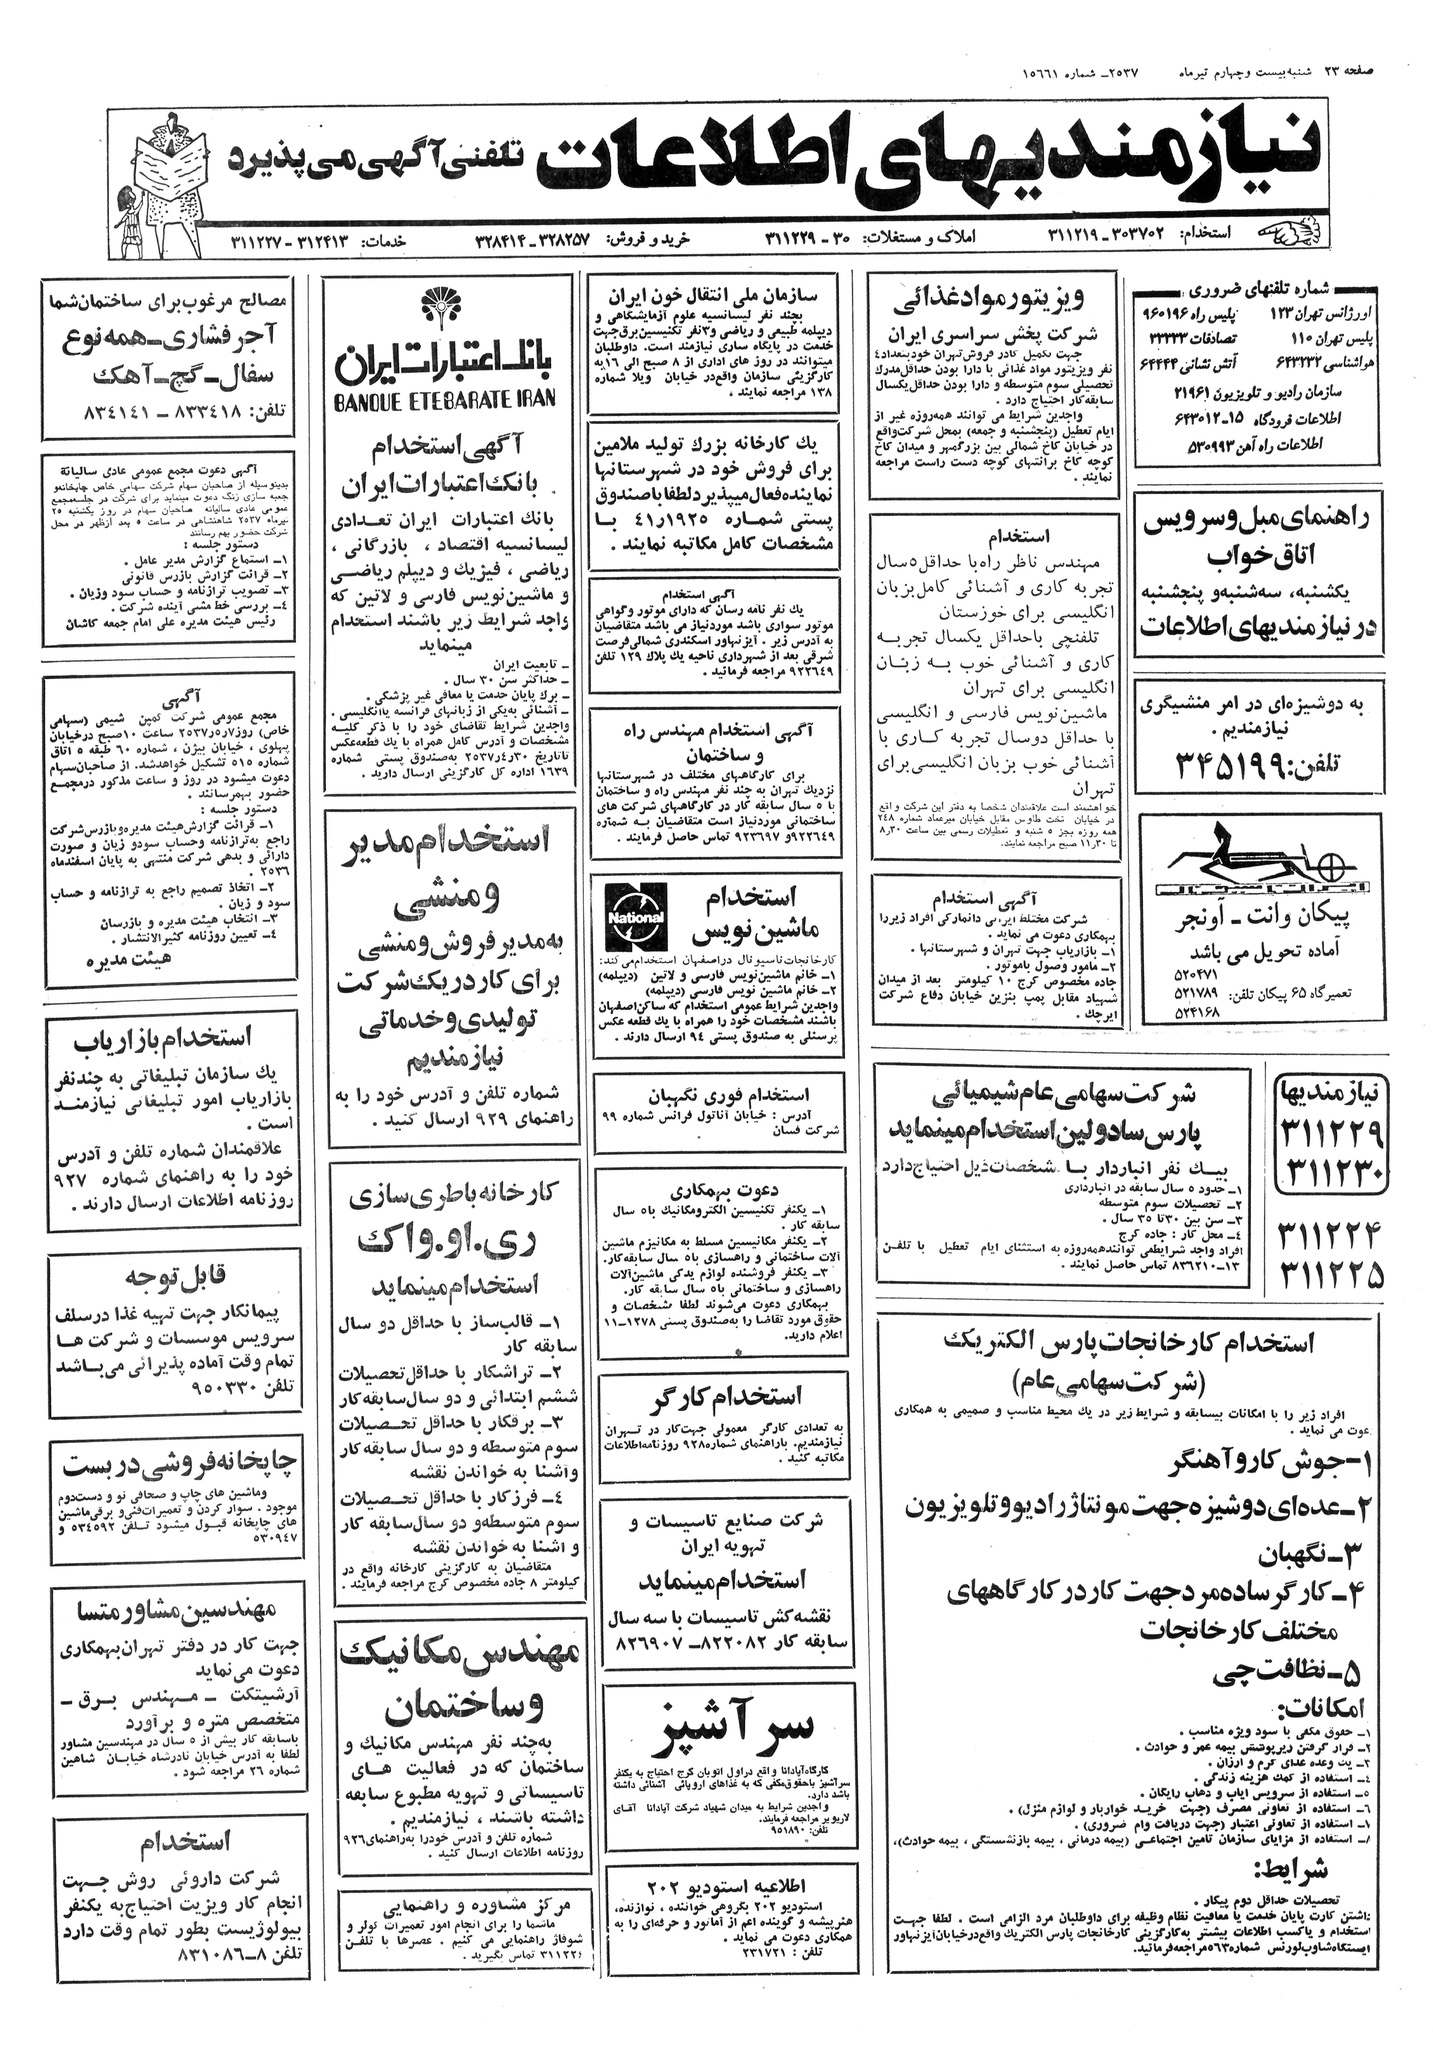 صفحه ۲۳ شنبه بیست و چهارم تیرماه ۲۵۳۷ـ شماره ۱۵۶۶۱
نیازمندیهای اطلاعات تلفنی آگهی می‌پذیرد
استخدام: ۳۰۳۷۰۲ـ۳۱۱۲۱۹ املاک و مستغلات: ۳۰ـ۳۱۱۲۲۹ خرید و فروش: ۳۲۸۲۵۷ـ۳۲۸۴۱۴ خدمات: ۳۱۲۴۱۳ـ۳۱۱۲۲۷
شماره تلفنهای ضروری
اورژانس تهران ۱۲۳ پلیس راه ۹۶۰۱۹۶
پلیس تهران ۱۱۰ تصادفات ۳۳۳۳۳
هواشناسی ۶۴۳۳۳۲ آتش نشانی ۶۴۴۴۴
سازمان رادیو و تلویزیون ۲۱۹۶۱
اطلاعات فرودگاه ۱۵ـ۶۴۳۰۱۲
اطلاعات راه آهن ۵۳۰۹۹۳
راهنمای مبل و سرویس
اتاق خواب
یکشنبه، سه‌شنبه و پنجشنبه
در نیازمندیهای اطلاعات
به دوشیزه‌ای در امر منشیگری
نیازمندیم .
تلفن: ۳۴۵۱۹۹
ایران ناسیونال
پیکان وانت ـ آونجر
آماده تحویل می باشد
۵۲۰۴۷۱
تعمیرگاه ۶۵ پیکان تلفن: ۵۲۱۷۸۹
۵۲۴۱۶۸
نیازمندیها
۳۱۱۲۲۹
۳۱۱۲۳۰
۳۱۱۲۲۴
۳۱۱۲۲۵
ویزیتور مواد غذائی
شرکت پخش سراسری ایران
جهت تکمیل کادر فروش تهران خود بتعداد ۴
نفر ویزیتور مواد غذائی با دارا بودن حداقل مدرک
تحصیلی سوم متوسطه و دارا بودن حداقل یکسال
سابقه کار احتیاج دارد .
واجدین شرایط می توانند همه‌روزه غیر از
ایام تعطیل (پنجشنبه و جمعه) بمحل شرکت واقع
در خیابان کاخ شمالی بین بزرگمهر و میدان کاخ
کوچه کاخ برانتهای کوچه دست راست مراجعه
نمایند .
استخدام
مهندس ناظر راه با حداقل ۵ سال
تجربه کاری و آشنائی کامل بزبان
انگلیسی برای خوزستان
تلفنچی با حداقل یکسال تجربه
کاری و آشنائی خوب به زبان
انگلیسی برای تهران
ماشین‌نویس فارسی و انگلیسی
با حداقل دوسال تجربه کاری با
آشنائی خوب بزبان انگلیسی برای
تهران
خواهشمند است علاقمندان شخصا به دفتر این شرکت واقع
در خیابان تخت طاوس مقابل خیابان میرعماد شماره ۲۴۸
همه روزه بجز ۵ شنبه و تعطیلات رسمی بین ساعت ۸ر۳۰
تا ۱۱ر۳۰ صبح مراجعه نمایند.
آگهی استخدام
شرکت مختلط ایرانی دانمارکی افراد زیر را
بهمکاری دعوت می نماید .
۱ـ بازاریاب جهت تهران و شهرستانها .
۲ـ مامور وصول با موتور .
جاده مخصوص کرج ۱۰ کیلومتر بعد از میدان
شهیاد مقابل پمپ بنزین خیابان دفاع شرکت
ایرچک .
شرکت سهامی عام شیمیائی
پارس سادولین استخدام مینماید
بیک نفر انباردار با مشخصات ذیل احتیاج دارد
۱ـ حدود ۵ سال سابقه در انبارداری
۲ـ تحصیلات سوم متوسطه
۳ـ سن بین ۳۰ تا ۳۵ سال .
۴ـ محل کار : جاده کرج
افراد واجد شرایط می توانند همه‌روزه به استثنای ایام تعطیل با تلفن
۱۳ـ۸۳۶۲۱۰ تماس حاصل نمایند .
استخدام کارخانجات پارس الکتریک
(شرکت سهامی عام)
افراد زیر را با امکانات بیسابقه و شرایط زیر در یک محیط مناسب و صمیمی به همکاری
دعوت می نماید .
۱ـ جوش کار و آهنگر
۲ـ عده‌ای دوشیزه جهت مونتاژ رادیو و تلویزیون
۳ـ نگهبان
۴ـ کارگر ساده مرد جهت کار در کارگاههای
مختلف کارخانجات
۵ـ نظافت چی
امکانات:
۱ـ حقوق مکفی با سود ویژه مناسب .
۲ـ قرار گرفتن زیر پوشش بیمه عمر و حوادث .
۳ـ یک وعده غذای گرم و ارزان .
۴ـ استفاده از کمک هزینه زندگی .
۵ـ استفاده از سرویس ایاب و ذهاب رایگان .
۶ـ استفاده از تعاونی مصرف (جهت خرید خواربار و لوازم منزل) .
۷ـ استفاده از تعاونی اعتبار (جهت دریافت وام ضروری) .
۸ـ استفاده از مزایای سازمان تامین اجتماعی (بیمه درمانی ، بیمه بازنشستگی ، بیمه حوادث).
شرایط:
تحصیلات حداقل دوم پیکار .
داشتن کارت پایان خدمت یا معافیت نظام وظیفه برای داوطلبان مرد الزامی است . لطفا جهت
استخدام و یا کسب اطلاعات بیشتر به کارگزینی کارخانجات پارس الکتریک واقع در خیابان آیزنهاور
ایستگاه شاوب لورنس شماره ۵۶۳ مراجعه فرمائید.
سازمان ملی انتقال خون ایران
بچند نفر لیسانسیه علوم آزمایشگاهی و
دیپلمه طبیعی و ریاضی و ۳ نفر تکنیسین برق جهت
خدمت در پایگاه ساری نیازمند است. داوطلبان
میتوانند در روز های اداری از ۸ صبح الی ۱۶ به
کارگزینی سازمان واقع در خیابان ویلا شماره
۱۳۸ مراجعه نمایند .
یک کارخانه بزرگ تولید ملامین
برای فروش خود در شهرستانها
نماینده فعال میپذیرد لطفا با صندوق
پستی شماره ۴۱ر۱۹۲۵ با
مشخصات کامل مکاتبه نمایند .
آگهی استخدام
یک نفر نامه رسان که دارای موتور و گواهی
موتور سواری باشد موردنیاز می باشد متقاضیان
به آدرس زیر . آیزنهاور اسکندری شمالی فرصت
شرقی بعد از شهرداری ناحیه یک پلاک ۱۳۹ تلفن
۹۲۲۶۴۹ مراجعه فرمائید .
آگهی استخدام مهندس راه
و ساختمان
برای کارگاههای مختلف در شهرستانها
نزدیک تهران به چند نفر مهندس راه و ساختمان
با ۵ سال سابقه کار در کارگاههای شرکت های
ساختمانی موردنیاز است متقاضیان به شماره
۹۲۲۶۴۹ و ۹۲۳۶۹۷ تماس حاصل فرمایند .
National
استخدام
ماشین نویس
کارخانجات ناسیونال در اصفهان استخدام می‌کند:
۱ـ خانم ماشین‌نویس فارسی و لاتین (دیپلمه)
۲ـ خانم ماشین نویس فارسی (دیپلمه)
واجدین شرایط عمومی استخدام که ساکن اصفهان
باشند مشخصات خود را همراه با یک قطعه عکس
پرسنلی به صندوق پستی ۹۴ ارسال دارند .
استخدام فوری نگهبان
آدرس : خیابان آناتول فرانس شماره ۹۹
شرکت فسان
دعوت بهمکاری
۱ـ یکنفر تکنیسین الکترومکانیک با ۵ سال
سابقه کار .
۲ـ یکنفر مکانیسین مسلط به مکانیزم ماشین
آلات ساختمانی و راهسازی با ۵ سال سابقه کار.
۳ـ یکنفر فروشنده لوازم یدکی ماشین‌آلات
راهسازی و ساختمانی با ۵ سال سابقه کار.
بهمکاری دعوت می‌شوند لطفا مشخصات و
حقوق مورد تقاضا را به صندوق پستی ۱۲۷۸ـ۱۱
اعلام دارید.
استخدام کارگر
به تعدادی کارگر معمولی جهت کار در تهران
نیازمندیم. با راهنمای شماره ۹۲۸ روزنامه اطلاعات
مکاتبه کنید .
شرکت صنایع تاسیسات و
تهویه ایران
استخدام مینماید
نقشه کش تاسیسات با سه سال
سابقه کار ۸۲۲۰۸۲ـ ۸۲۶۹۰۷
سرآشپز
کارگاه آپادانا واقع در اول اتوبان کرج احتیاج به یکنفر
سرآشپز با حقوق مکفی که به غذاهای اروپائی آشنائی داشته
باشد دارد.
واجدین شرایط به میدان شهیاد شرکت آپادانا آقای
لاریو بر مراجعه فرمایند.
تلفن: ۹۵۱۸۹۰
اطلاعیه استودیو ۲۰۲
استودیو ۲۰۲ بگروهی خواننده ، نوازنده،
هنرپیشه و گوینده اعم از آماتور و حرفه‌ای را به
همکاری دعوت می نماید .
تلفن : ۲۳۱۷۲۱
بانک اعتبارات ایران
BANQUE ETEBARATE IRAN
آگهی استخدام
بانک اعتبارات ایران
بانک اعتبارات ایران تعدادی
لیسانسیه اقتصاد ، بازرگانی ،
ریاضی ، فیزیک و دیپلم ریاضی
و ماشین‌نویس فارسی و لاتین که
واجد شرایط زیر باشند استخدام
مینماید
ـ تابعیت ایران
ـ حداکثر سن ۳۰ سال .
ـ برگ پایان خدمت یا معافی غیر پزشکی .
ـ آشنائی به‌یکی از زبانهای فرانسه یا انگلیسی .
واجدین شرایط تقاضای خود را با ذکر کلیه
مشخصات و آدرس کامل همراه با یک قطعه عکس
تا تاریخ ۳۰ر۴ر۲۵۳۷ به صندوق پستی شماره
۱۶۳۹ اداره کل کارگزینی ارسال دارید .
استخدام مدیر
و منشی
به مدیر فروش و منشی
برای کار در یک شرکت
تولیدی و خدماتی
نیازمندیم
شماره تلفن و آدرس خود را به
راهنمای ۹۲۹ ارسال کنید .
کارخانه باطری سازی
ری.او.واک
استخدام مینماید
۱ـ قالب‌ساز با حداقل دو سال
سابقه کار
۲ـ تراشکار با حداقل تحصیلات
ششم ابتدائی و دو سال سابقه کار
۳ـ برقکار با حداقل تحصیلات
سوم متوسطه و دو سال سابقه کار
و آشنا به خواندن نقشه
۴ـ فرزکار با حداقل تحصیلات
سوم متوسطه و دو سال سابقه کار
و آشنا به خواندن نقشه
متقاضیان به کارگزینی کارخانه واقع در
کیلومتر ۸ جاده مخصوص کرج مراجعه فرمایند .
مهندس مکانیک
و ساختمان
به چند نفر مهندس مکانیک و
ساختمان که در فعالیت های
تاسیساتی و تهویه مطبوع سابقه
داشته باشند ، نیازمندیم .
شماره تلفن و آدرس خود را به راهنمای ۹۲۶
روزنامه اطلاعات ارسال کنید .
مرکز مشاوره و راهنمایی
ماشما را برای انجام امور تعمیرات کولر و
شوفاژ راهنمایی می کنیم . عصرها با تلفن
۳۱۱۲۲۶ تماس بگیرید .
مصالح مرغوب برای ساختمان شما
آجر فشاری ـ همه نوع
سفال ـ گچ ـ آهک
تلفن: ۸۳۳۴۱۸ ـ ۸۳۴۱۴۱
آگهی دعوت مجمع عمومی عادی سالیانه
بدینوسیله از صاحبان سهام شرکت سهامی خاص چاپخانه و
جعبه سازی زنگ دعوت مینماید برای شرکت در جلسه مجمع
عمومی عادی سالیانه صاحبان سهام در روز یکشنبه ۲۵
تیرماه ۲۵۳۷ شاهنشاهی در ساعت ۵ بعد ازظهر در محل
شرکت حضور بهم رسانند
دستور جلسه :
۱ـ استماع گزارش مدیر عامل .
۲ـ قرائت گزارش بازرس قانونی
۳ـ تصویب ترازنامه و حساب سود وزیان .
۴ـ بررسی خط مشی آینده شرکت .
رئیس هیئت مدیره علی امام جمعه کاشان
آگهی
مجمع عمومی شرکت کمپن شیمی (سهامی
خاص) روز ۵ر۷ر۲۵۳۷ ساعت ۱۰ صبح در خیابان
پهلوی ، خیابان بیژن ، شماره ۶۰ طبقه ۵ اتاق
شماره ۵۱۵ تشکیل خواهد شد. از صاحبان سهام
دعوت میشود در روز و ساعت مذکور در مجمع
حضور بهمرسانند .
دستور جلسه :
۱ـ قرائت گزارش هیئت مدیره و بازرس شرکت
راجع به ترازنامه وحساب سودو زیان و صورت
دارائی و بدهی شرکت منتهی به پایان اسفندماه
۲۵۳۶ .
۲ـ اتخاذ تصمیم راجع به ترازنامه و حساب
سود و زیان .
۳ـ انتخاب هیئت مدیره و بازرسان
۴ـ تعیین روزنامه کثیرالانتشار .
هیئت مدیره
استخدام بازاریاب
یک سازمان تبلیغاتی به چند نفر
بازاریاب امور تبلیغاتی نیازمند
است .
علاقمندان شماره تلفن و آدرس
خود را به راهنمای شماره ۹۲۷
روزنامه اطلاعات ارسال دارند .
قابل توجه
پیمانکار جهت تهیه غذا در سلف
سرویس موسسات و شرکت ها
تمام وقت آماده پذیرائی می‌باشد
تلفن ۹۵۰۳۳۰
چاپخانه فروشی دربست
وماشین های چاپ و صحافی نو و دست دوم
موجود . سوار کردن و تعمیرات فنی و برقی ماشین
های چاپخانه قبول میشود تلفن ۵۳۴۵۹۲ و
۵۳۰۹۴۷
مهندسین مشاور متسا
جهت کار در دفتر تهران بهمکاری
دعوت می‌نماید
آرشیتکت ـ مهندس برق ـ
متخصص متره و برآورد
باسابقه کار بیش از ۵ سال در مهندسین مشاور
لطفا به آدرس خیابان نادرشاه خیابان شاهین
شماره ۳۶ مراجعه شود .
استخدام
شرکت داروئی روش جهت
انجام کار ویزیت احتیاج به یکنفر
بیولوژیست بطور تمام وقت دارد
تلفن ۸ـ۸۳۱۰۸۶